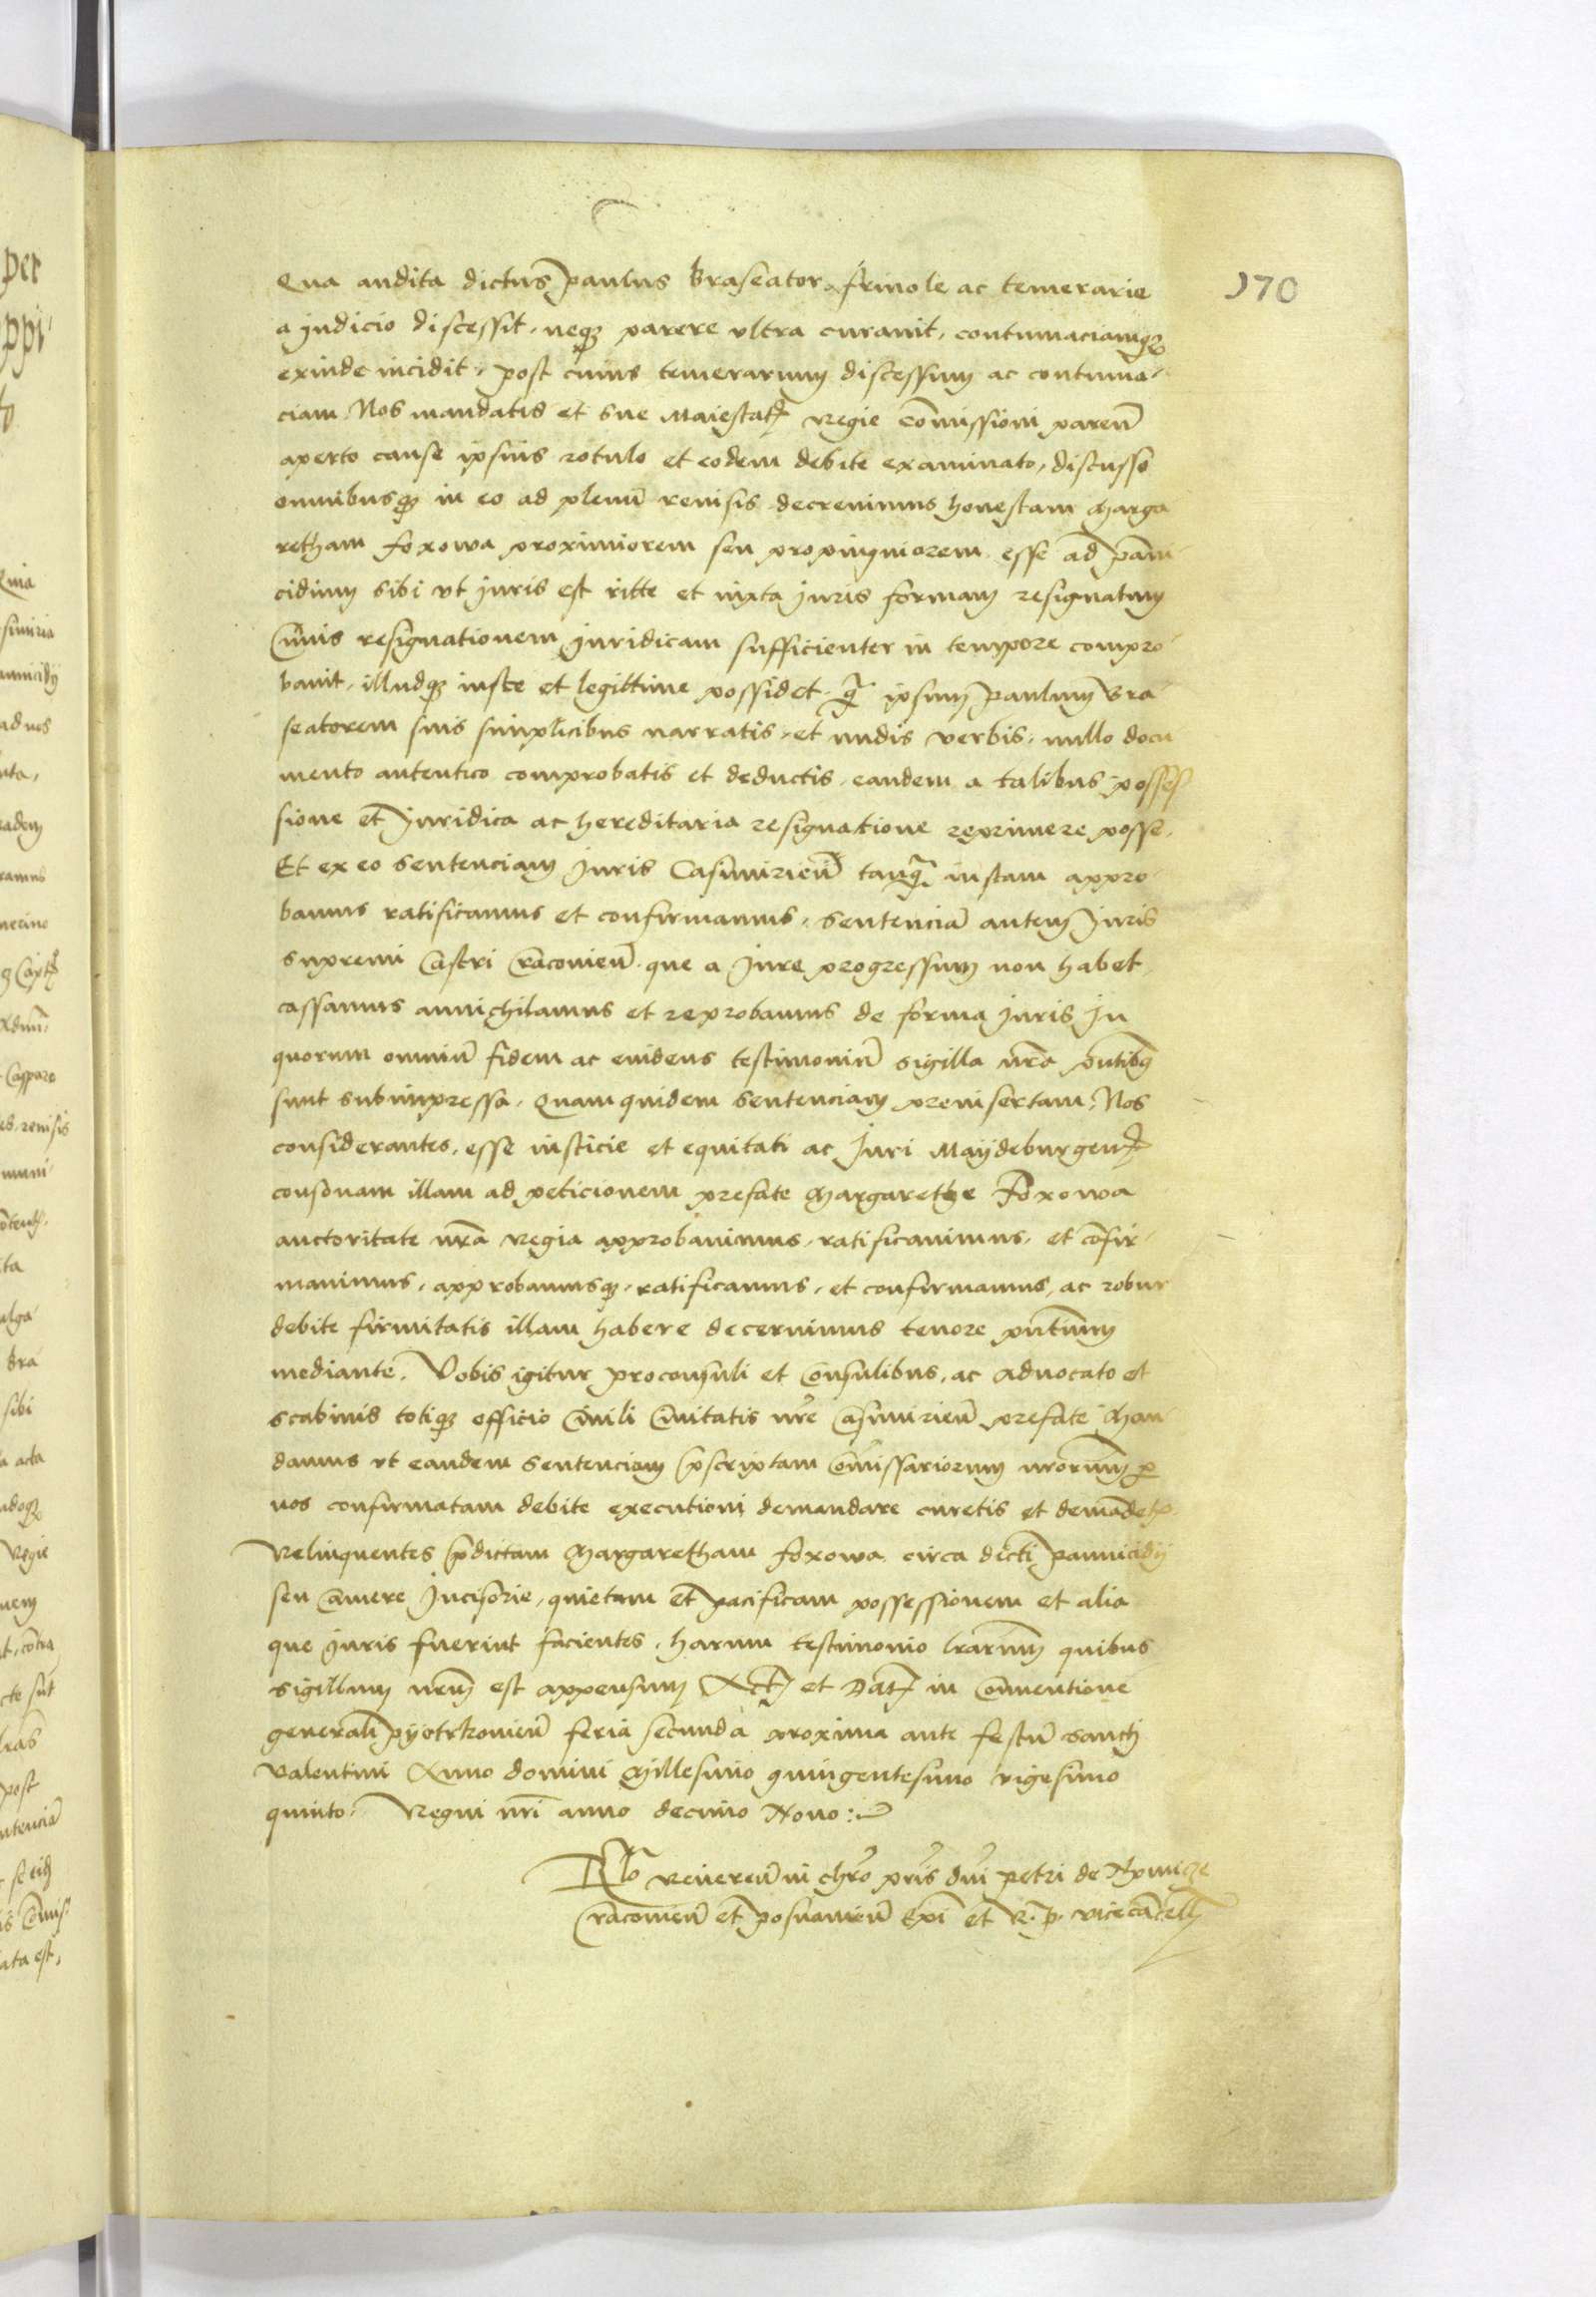 170
Qua audita dictus paulus braseator friuole ac temerarie
a judicio discessit, neq₃ parere vltra curauit, contumaciamq₃
exinde incidit, post cuius temerarium discessum ac contuma-
ciam Nos mandatis et sue Maiestat₃ Regie cōmissioni pareñ
aperto cause ipsius rotulo et eodem debite examinato, discusso
omnibusq₃ in eo ad plenū reuisis decreuimus honestam Marga
retham foxowa proximiorem seu propinquiorem esse ad pāni
cidium sibi vt juris est ritte et iuxta juris formam resignatum
Cuius resignationem juridicam sufficienter in tempore compro-
bauit, illudq₃ iuste et legittime possidet, q̄ ipsum paulum bra-
seatorem suis simplicibus narratis, et nudis verbis, nullo docu
mento autentico comprobatis et deductis, eandem a talibus posses
sione et juridica ac hereditaria resignatione reprimere posse.
Et ex eo sentenciam juris Casimirieñ tanq̄ iustam appro-
bamus ratificamus et confirmamus, sentenciā autem juris
supremi Castri Cracouieñ que a jure progressum non habet
cassamus annichilamus et reprobamus de forma juris In
quorum omniū fidem ac euidens testimoniū sigilla nrā pñtibq₃
sunt subimpressa. Quam quidem sentenciam preinsertam, Nos
considerantes, esse iusticie et equitati ac Juri Maydeburgeñ
consonam illam ad peticionem prefate Margarethe Foxowa
auctoritate nrā regia approbauimus, ratificauimus, et cōfir-
mauimus, approbamusq₃, ratificamus, et confirmamus, ac robur
debite firmitatis illam habere decernimus tenore pñtium
mediante. Vobis igitur proconsuli et Consulibus, ac aduocato et
scabinis totiq₃ officio Ciuili Ciuitatis nrē Casimirieñ prefate Man
damus vt eandem sentenciam p̄scriptam Cōmissariorum nrorum p
nos confirmatam debite executioni demandare curetis et demādet₃
Relinquentes p̄dictam Margaretham foxowa circa dicti pannicidij
seu Camere Incisorie, quietam et pacificam possessionem et alia
que juris fuerint facientes, harum testimonio lrarum quibus
sigillum nrum est appensum Act₃ et Dat₃ in Conuentione
generali pyotrkouieñ feria secunda proxima ante festū sancti
valentini Anno domini Millesimo quingentesimo vigesimo
quinto. Regni nri anno decimo Nono :
Rlo Reuereñ in chro pris dni petri de
Cracouieñ et posnanieñ Epi et R. p. vicecācellī